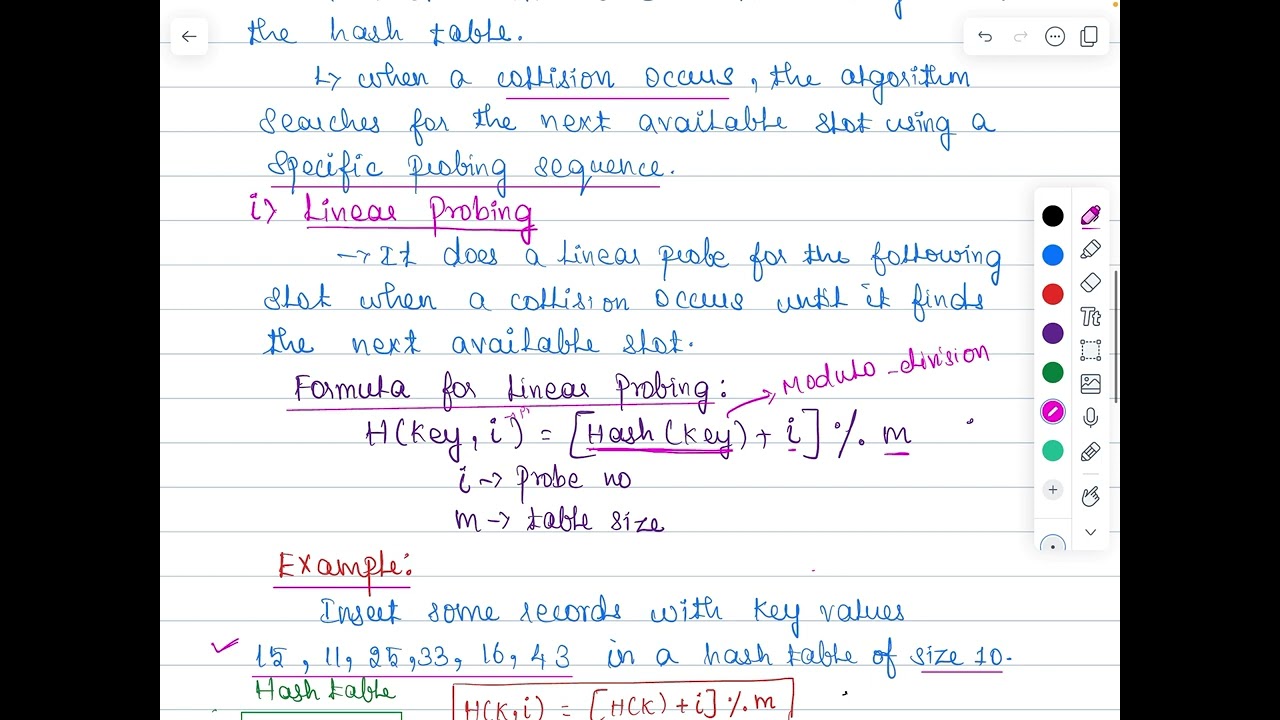 the hash table.
↳ when a collision occurs, the algorithm
searches for the next available slot using a
specific probing sequence.
i) Linear Probing
→ It does a linear probe for the following
slot when a collision occurs until it finds
the next available slot.
Modulo-division
Formula for Linear Probing:
H(Key, i) = [Hash(Key) + i] % m
i → Probe no
m → table size
Example:
Insert some records with key values
15, 11, 25, 33, 16, 43 in a hash table of size 10.
Hash table
H(K, i) = [H(K) + i] % m
Tt